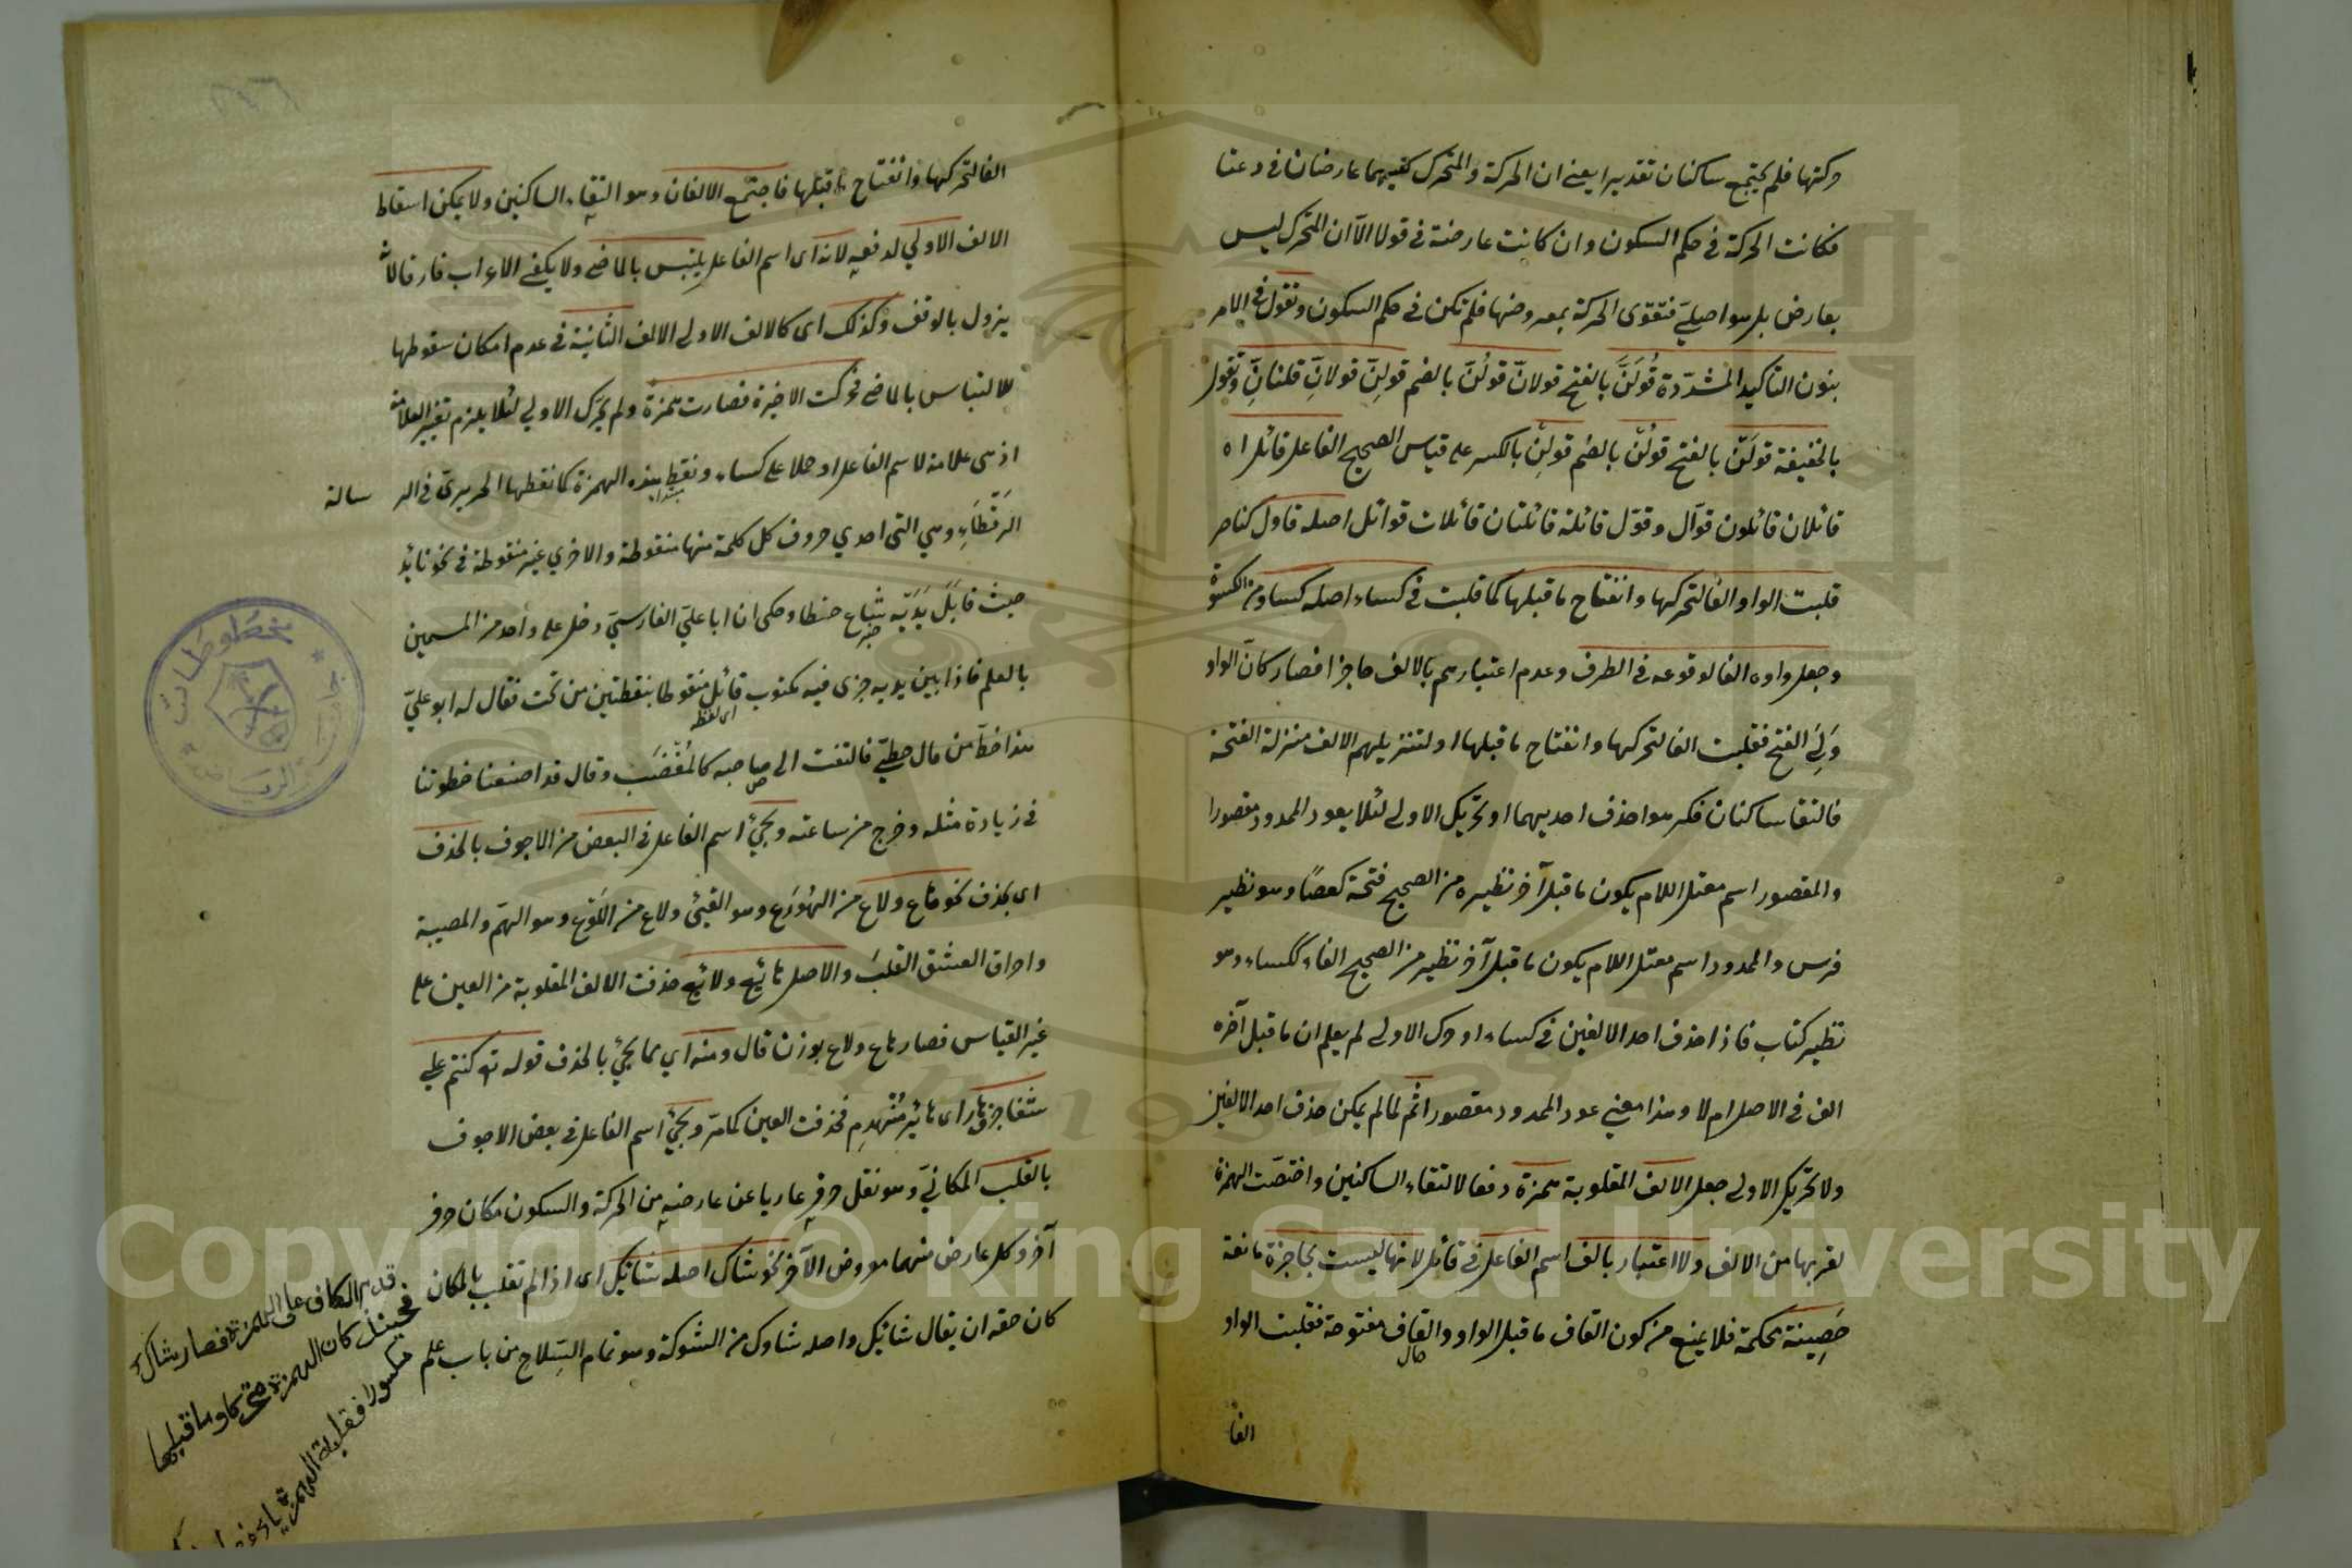 حركتها فلم يجتمع ساكنان تقديرا يعني ان الحركة والمتحرك كليهما عارضان في دعتا
فكانت الحركة في حكم السكون وان كانت عارضة في قولا الا ان المتحرك ليس
بعارض بل هو اصلي فتقوى الحركة بمعروضها فلم تكن في حكم السكون وتقول في الامر
بنون التأكيد المشدّدة قُولَنَّ بالفتح قولانّ قولُنّ بالضم قولِنّ قولانّ قلنانِّ وتقول
بالخفيفة قولَنْ بالفتح قولُنْ بالضم قولِنْ بالكسر على قياس الصحيح الفاعل قائل اه
قائلان قائلون قوّال وقوّل قائلة قائلتان قائلات قوائل اصله قاول كناصر
قلبت الواو الفا لتحركها وانفتاح ما قبلها كما قلبت في كساء اصله كساو من الكسوة
وجعل واوه الفا لوقوعه في الطرف وعدم اعتبارهم بالالف حاجزا فصار كانّ الواو
وَلِيَ الفتح فقلبت الفا لتحركها وانفتاح ما قبلها او لتنزيلهم الالف منزلة الفتحة
فالتقا ساكنان فكرهوا حذف احديهما او تحريك الاولى لئلا يعود الممدود مقصورا
والمقصور اسم معتل اللام يكون ما قبل آخر نظيره من الصحيح فتحة كعصًا وهو نظير
فرس والممدود اسم معتل اللام يكون ما قبل آخر نظيره من الصحيح الفا ككساء وهو
نظير كتاب فاذا حذف احد الالفين في كساء او حرك الاولى لم يعلم ان ما قبل آخره
الف في الاصل ام لا وهذا معنى عود الممدود مقصورا ثم لما لم يمكن حذف احد الالفين
ولا تحريك الاولى جعل الالف المقلوبة همزة دفعا لالتقاء الساكنين واختصّت الهمزة
لقربها من الالف ولا اعتبار بالف اسم الفاعل في قائل لانها ليست بحاجزة مانعة
حَصِينة محكمة فلا يمنع من كون القاف ما قبل الواو والقاف مفتوحة فقلبت الواو
حال
الفا
الفا لتحركها وانفتاح ما قبلها فاجتمع الالفان وهو التقاء الساكنين ولا يمكن اسقاط
الالف الاولي لدفعه لانه اى اسم الفاعل يلتبس بالماضى ولا يكفى الاعراب فارقا لانه
يزول بالوقف وكذلك اى كالالف الاولى الالف الثانية في عدم امكان سقوطها
للالتباس بالماضى فحركت الاخيرة فصارت همزة ولم يحرك الاولي لئلا يلزم تغيير العلامة
اذ هى علامة لاسم الفاعل او حملا على كساء ونقط هذه الهمزة كما نقطها الحريرى في الر سالة
مبتدا
الرقطاءِ وهي التى احدي حروف كل كلمة منها منقوطة والاخري غير منقوطة في نحو نائل
حيث قابل يديه خطا وحكى ان ابا علي الفارسيّ دخل على واحد من المسمين
خبر
بالعلم فاذا بين يديه جزء فيه مكتوب قائل منقوطا بنقطتين من تحت فقال له ابو عليّ
اى لفظ
هذا خطّ من قال خطي فالتفت الى صاحبه كالمُغْضَب وقال قد اضعنا خطوتنا
في زيارة مثله وخرج من ساعته ويجئ اسم الفاعل في البعض من الاجوف بالحذف
اى بحذف نحو هاع ولاع من الهُوَع وهو القيئ ولاع من اللَّوْع وهو الهمّ والمصيبة
واحراق العشق القلبَ والاصل هائع ولائع حذفت الالف المقلوبة من العين على
غير القياس فصار هاع ولاع بوزن قال ومنه اي مما يجئ بالحذف قوله تع كنتم علي
شفا جرف هار اى هائر مُنْهدم فحذفت العين كما مرّ ويجئ اسم الفاعل في بعض الاجوف
بالقلب المكانيّ وهو نقل حرفٍ عاريا عن عارضيه من الحركة والسكون مكان حرف
آخر وكل عارض منهما معروض الآخر نحو شاك اصله شائك اى اذا لم تقلب بالمكان
كان حقه ان يقال شائك واصله شاوك من الشوكة وهو تمام السِّلاح من باب علم
قدم الكاف على الهمزة فصار شاك
فحينئذ كان الهمزة متحركا وما قبلها
مكسورا فقلبت الهمزة ياء
مخطوطات
Copyright © King Saud University